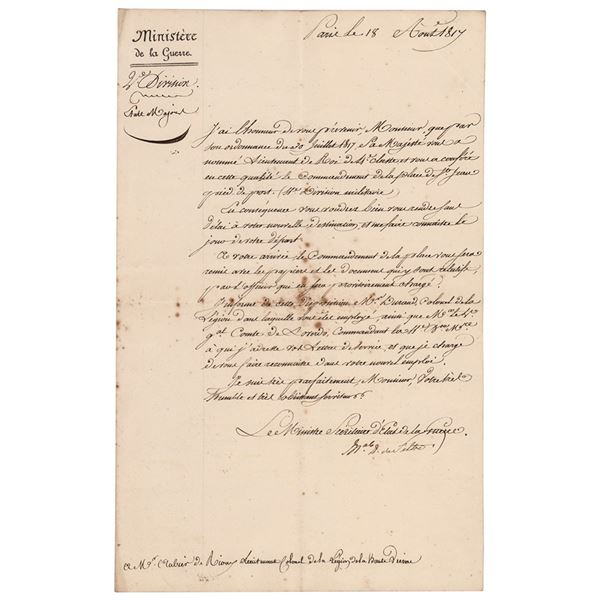 Ministère
de la Guerre.
2e Division
Etat Major
Paris le 18 Août 1817
J'ai l'honneur de vous prévenir, Monsieur, que par
son ordonnance du 30 Juillet 1817, Sa Majesté vous a
nommé Lieutenant de Roi de 4e Classe et vous a conféré
en cette qualité le Commandement de la place de St Jean
pied de port. (11e Division militaire)
En conséquence vous voudrez bien vous rendre sans
délai à votre nouvelle destination, et me faire connaître le
jour de votre départ.
A votre arrivée le Commandement de la place vous sera
remis avec les papiers et les documents qui y sont relatifs,
par l'officier qui en sera provisoirement chargé.
J'informe de cette disposition Mr Durand, Colonel de la
Légion dans laquelle vous êtes employé, ainsi que Mr le
Comte de Commandant la 11e Don Mre
à qui j'adresse vos Lettres de Service, et que je charge
de vous faire reconnaître dans votre nouvel emploi.
Je suis très parfaitement, Monsieur, Votre très
humble et très obéissant serviteur
Le Ministre Secrétaire d'Etat de la Guerre.
Mal D. de Feltre
à Mr de Lieutenant Colonel de la Légion de la Haute Vienne